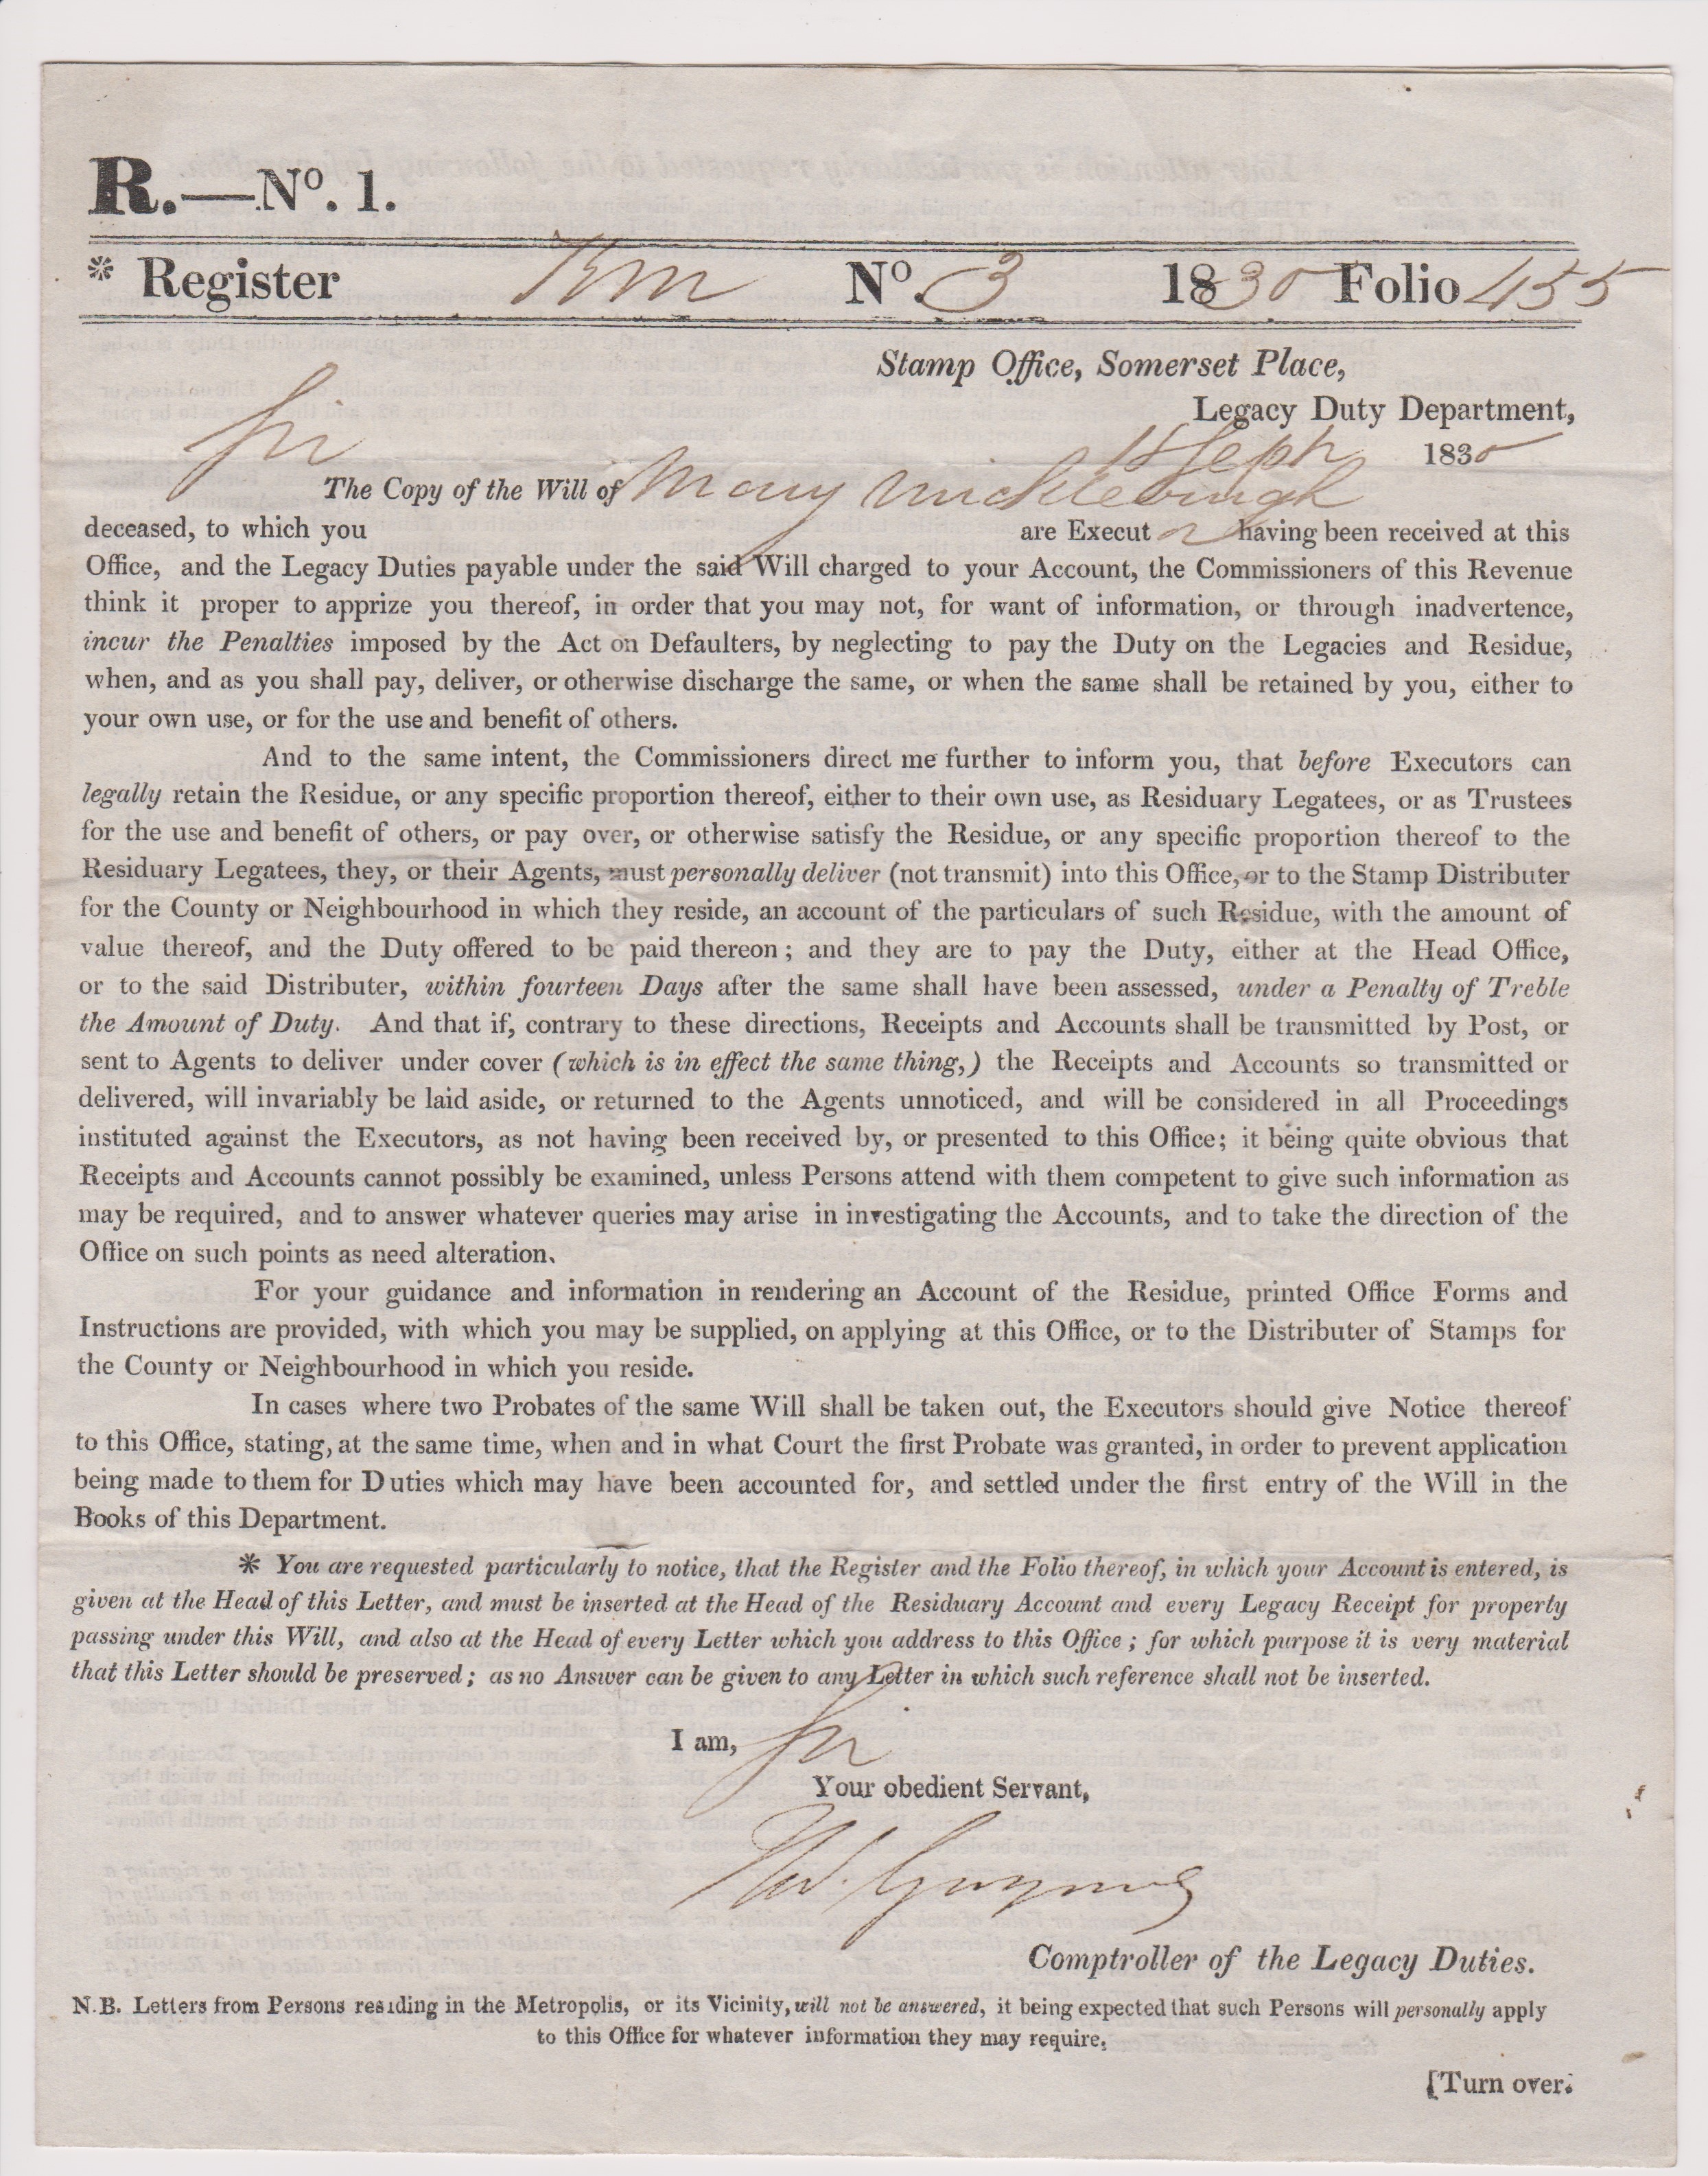 R.—No. 1.
* Register No. 3 1830 Folio 455
Stamp Office, Somerset Place,
Legacy Duty Department,
Sir Sept 1830
The Copy of the Will of Mary Micklebrugh
deceased, to which you are Execut or having been received at this
Office, and the Legacy Duties payable under the said Will charged to your Account, the Commissioners of this Revenue
think it proper to apprize you thereof, in order that you may not, for want of information, or through inadvertence,
incur the Penalties imposed by the Act on Defaulters, by neglecting to pay the Duty on the Legacies and Residue,
when, and as you shall pay, deliver, or otherwise discharge the same, or when the same shall be retained by you, either to
your own use, or for the use and benefit of others.
And to the same intent, the Commissioners direct me further to inform you, that before Executors can
legally retain the Residue, or any specific proportion thereof, either to their own use, as Residuary Legatees, or as Trustees
for the use and benefit of others, or pay over, or otherwise satisfy the Residue, or any specific proportion thereof to the
Residuary Legatees, they, or their Agents, must personally deliver (not transmit) into this Office, or to the Stamp Distributer
for the County or Neighbourhood in which they reside, an account of the particulars of such Residue, with the amount of
value thereof, and the Duty offered to be paid thereon; and they are to pay the Duty, either at the Head Office,
or to the said Distributer, within fourteen Days after the same shall have been assessed, under a Penalty of Treble
the Amount of Duty. And that if, contrary to these directions, Receipts and Accounts shall be transmitted by Post, or
sent to Agents to deliver under cover (which is in effect the same thing,) the Receipts and Accounts so transmitted or
delivered, will invariably be laid aside, or returned to the Agents unnoticed, and will be considered in all Proceedings
instituted against the Executors, as not having been received by, or presented to this Office; it being quite obvious that
Receipts and Accounts cannot possibly be examined, unless Persons attend with them competent to give such information as
may be required, and to answer whatever queries may arise in investigating the Accounts, and to take the direction of the
Office on such points as need alteration.
For your guidance and information in rendering an Account of the Residue, printed Office Forms and
Instructions are provided, with which you may be supplied, on applying at this Office, or to the Distributer of Stamps for
the County or Neighbourhood in which you reside.
In cases where two Probates of the same Will shall be taken out, the Executors should give Notice thereof
to this Office, stating, at the same time, when and in what Court the first Probate was granted, in order to prevent application
being made to them for Duties which may have been accounted for, and settled under the first entry of the Will in the
Books of this Department.
* You are requested particularly to notice, that the Register and the Folio thereof, in which your Account is entered, is
given at the Head of this Letter, and must be inserted at the Head of the Residuary Account and every Legacy Receipt for property
passing under this Will, and also at the Head of every Letter which you address to this Office; for which purpose it is very material
that this Letter should be preserved; as no Answer can be given to any Letter in which such reference shall not be inserted.
I am, Sir
Your obedient Servant,
Comptroller of the Legacy Duties.
N.B. Letters from Persons residing in the Metropolis, or its Vicinity, will not be answered, it being expected that such Persons will personally apply
to this Office for whatever information they may require.
[Turn over.